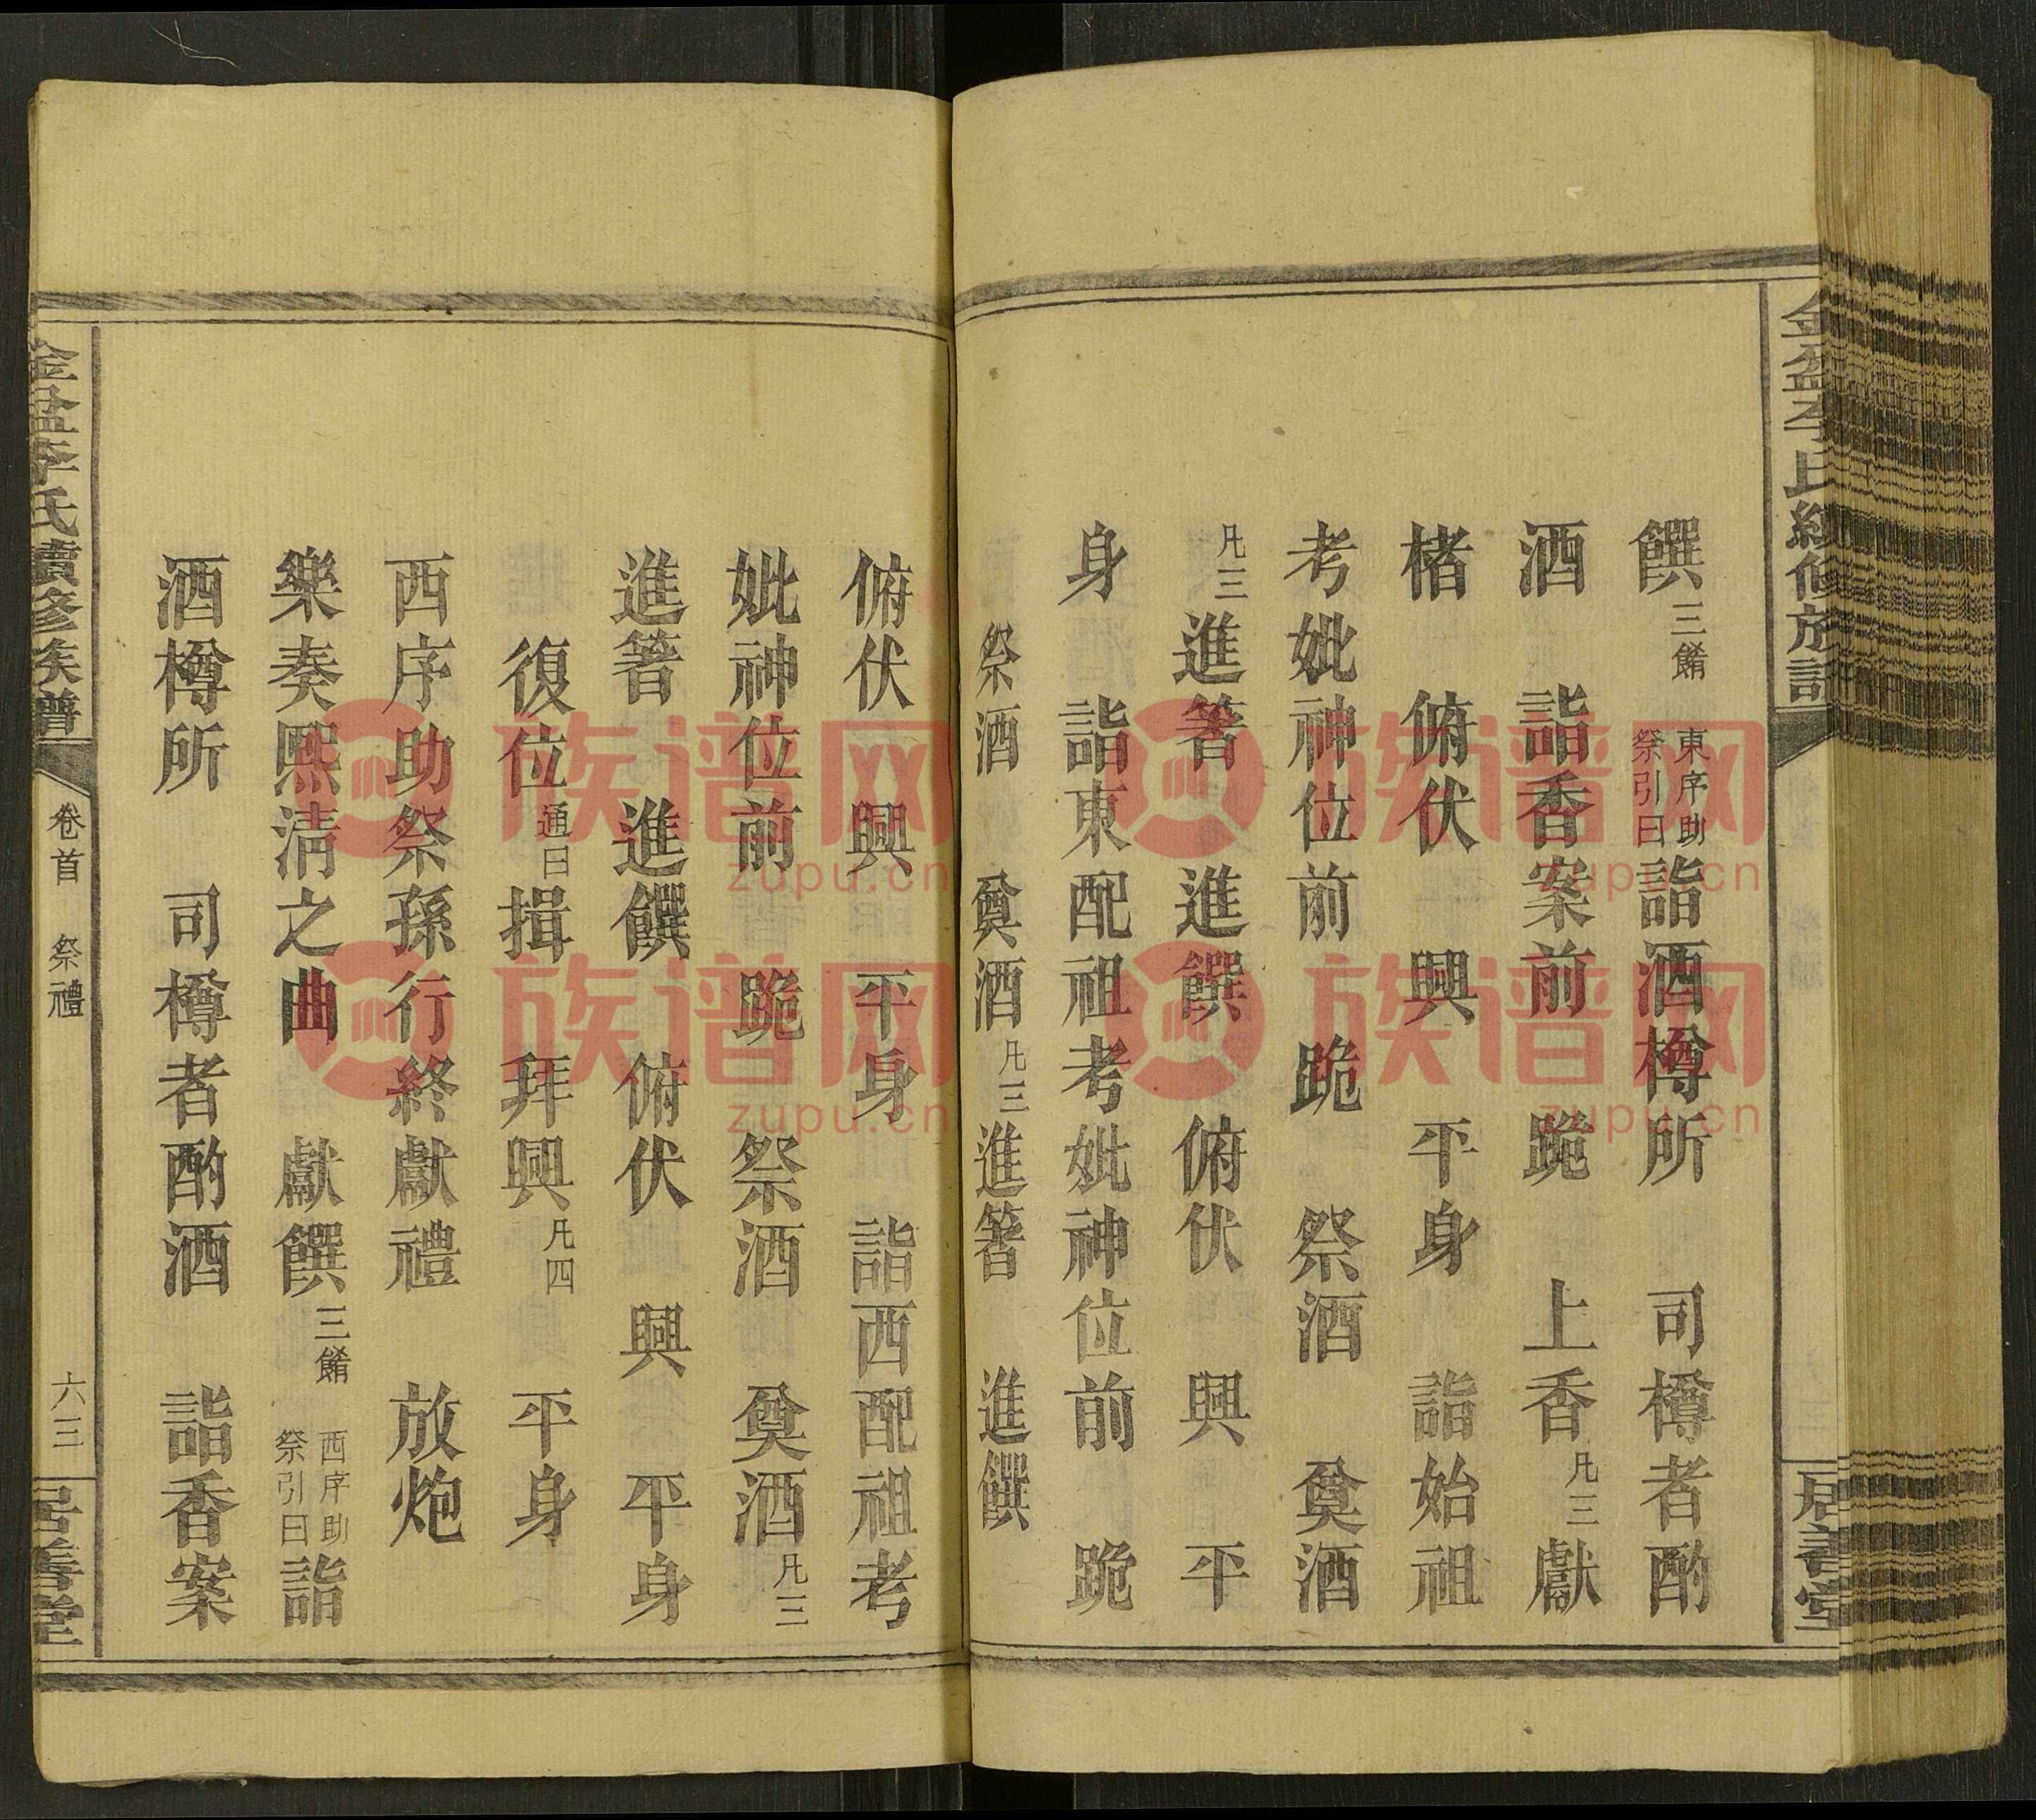 饌三餚 東序助祭引曰詣酒樽所 司樽者酌
酒 詣香案前 跪 上香凡三獻
楮 俯伏 興 平身 詣始祖
考妣神位前 跪 祭酒 奠酒
凡三進箸 進饌 俯伏 興 平
身 詣東配祖考妣神位前 跪
祭酒 奠酒凡三進箸 進饌
俯伏 興 平身 詣西配祖考
妣神位前 跪 祭酒 奠酒凡三
進箸 進饌 俯伏 興 平身
復位通曰揖 拜興凡四 平身
西序助祭孫行終獻禮 放炮
樂奏熙清之曲 獻饌三餚 西序助祭引曰詣
酒樽所 司樽者酌酒 詣香案
金盆李氏續修族譜 卷首 祭禮 六三 居善堂
族谱网
zupu.cn
族谱网
zupu.cn
族谱网
zupu.cn
族谱网
zupu.cn